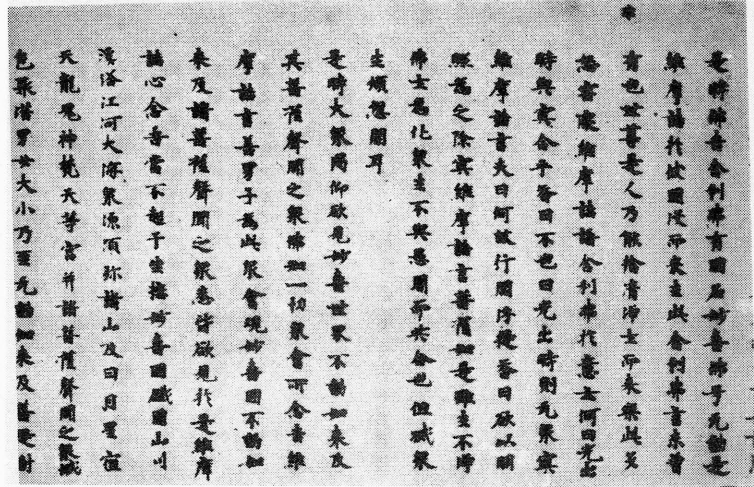 是時佛告舍利弗有國名妙喜佛号无動是
維摩詰於彼國沒而來生此舍利弗言未曾
有也世尊是人乃能捨清淨土而來樂此多
怒害處維摩詰語舍利弗於意云何日光出
時與冥合乎答曰不也日光出時則无眾冥
維摩詰言夫日何故行閻浮提答曰欲以明
照為之除冥維摩詰言菩薩如是雖生不淨
佛土為化眾生不與愚闇而共合也但滅眾
生煩惱闇耳
是時大眾渴仰欲見妙喜世界不動如來及
其菩薩聲聞之眾佛知一切眾會所念告維
摩詰言善男子為此眾會現妙喜國不動如
來及諸菩薩聲聞之眾悉皆欲見於是維摩
詰心念吾當不起于坐接妙喜國鐵圍山川
溪谷江河大海泉源須弥諸山及日月星宿
天龍鬼神梵天等宮并諸菩薩聲聞之眾城
邑聚落男女大小乃至无動如來及菩提樹